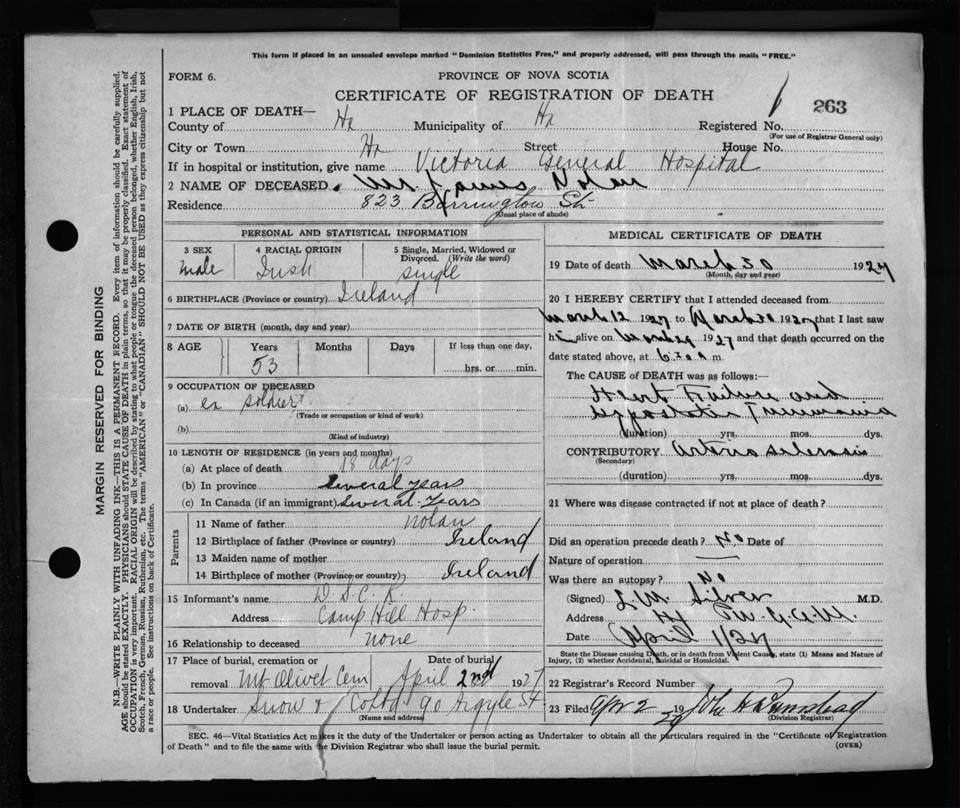 This form if placed in an unsealed envelope marked "Dominion Statistics Free," and properly addressed, will pass through the mails "FREE."
FORM 6.
PROVINCE OF NOVA SCOTIA
CERTIFICATE OF REGISTRATION OF DEATH
263
1 PLACE OF DEATH—
County of Hx Municipality of Hx Registered No.
(For use of Registrar General only)
City or Town Hx Street House No.
If in hospital or institution, give name Victoria General Hospital
2 NAME OF DECEASED. Mr James Nolan
Residence 823 Barrington St.
(Usual place of abode)
PERSONAL AND STATISTICAL INFORMATION
3 SEX 4 RACIAL ORIGIN 5 Single, Married, Widowed or Divorced. (Write the word)
Male Irish single
6 BIRTHPLACE (Province or country) Ireland
7 DATE OF BIRTH (month, day and year)
8 AGE Years Months Days If less than one day,
53 hrs. or min.
9 OCCUPATION OF DECEASED
(a) ex soldier
(Trade or occupation or kind of work)
(b)
(Kind of industry)
10 LENGTH OF RESIDENCE (in years and months)
(a) At place of death 18 days
(b) In province Several years
(c) In Canada (if an immigrant) Several Years
Parents
11 Name of father Nolan
12 Birthplace of father (Province or country) Ireland
13 Maiden name of mother
14 Birthplace of mother (Province or country) Ireland
15 Informant's name D.S.C.R.
Address Camp Hill Hosp.
16 Relationship to deceased none
17 Place of burial, cremation or Date of burial
removal Mt Olivet Cem April 2nd 1927
18 Undertaker Snow & Co Ltd 90 Argyle St.
(Name and address)
MEDICAL CERTIFICATE OF DEATH
19 Date of death March 30 1927
(Month, day and year)
20 I HEREBY CERTIFY that I attended deceased from
March 12 1927 to March 30 1927 that I last saw
h alive on March 29 1927 and that death occurred on the
date stated above, at 6 m.
The CAUSE OF DEATH was as follows:—
Heart Failure and
Hypostatic Pneumonia
(duration) yrs. mos. dys.
CONTRIBUTORY Arterio sclerosis
(Secondary)
(duration) yrs. mos. dys.
21 Where was disease contracted if not at place of death?
Did an operation precede death? No Date of
Nature of operation —
Was there an autopsy? No
(Signed) Silver M.D.
Address
Date April 1/27
State the Disease causing Death, or in death from Violent Causes, state (1) Means and Nature of
Injury, (2) whether Accidental, Suicidal or Homicidal.
22 Registrar's Record Number
23 Filed Apr 2 1927
(Division Registrar)
SEC. 46—Vital Statistics Act makes it the duty of the Undertaker or person acting as Undertaker to obtain all the particulars required in the "Certificate of Registration
of Death" and to file the same with the Division Registrar who shall issue the burial permit.
(OVER)
MARGIN RESERVED FOR BINDING
N.B.—WRITE PLAINLY WITH UNFADING INK—THIS IS A PERMANENT RECORD. Every item of information should be carefully supplied.
AGE should be stated EXACTLY. PHYSICIANS should STATE CAUSE OF DEATH in plain terms, so that it may be properly classified. Exact statement of
OCCUPATION is very important. RACIAL ORIGIN will be described by stating to what people or tongue the deceased person belonged, whether English, Irish,
Scotch, French, German, Russian, Ruthenian, etc. The terms "AMERICAN" or "CANADIAN" SHOULD NOT BE USED as they express citizenship but not
a race or people. See instructions on back of Certificate.